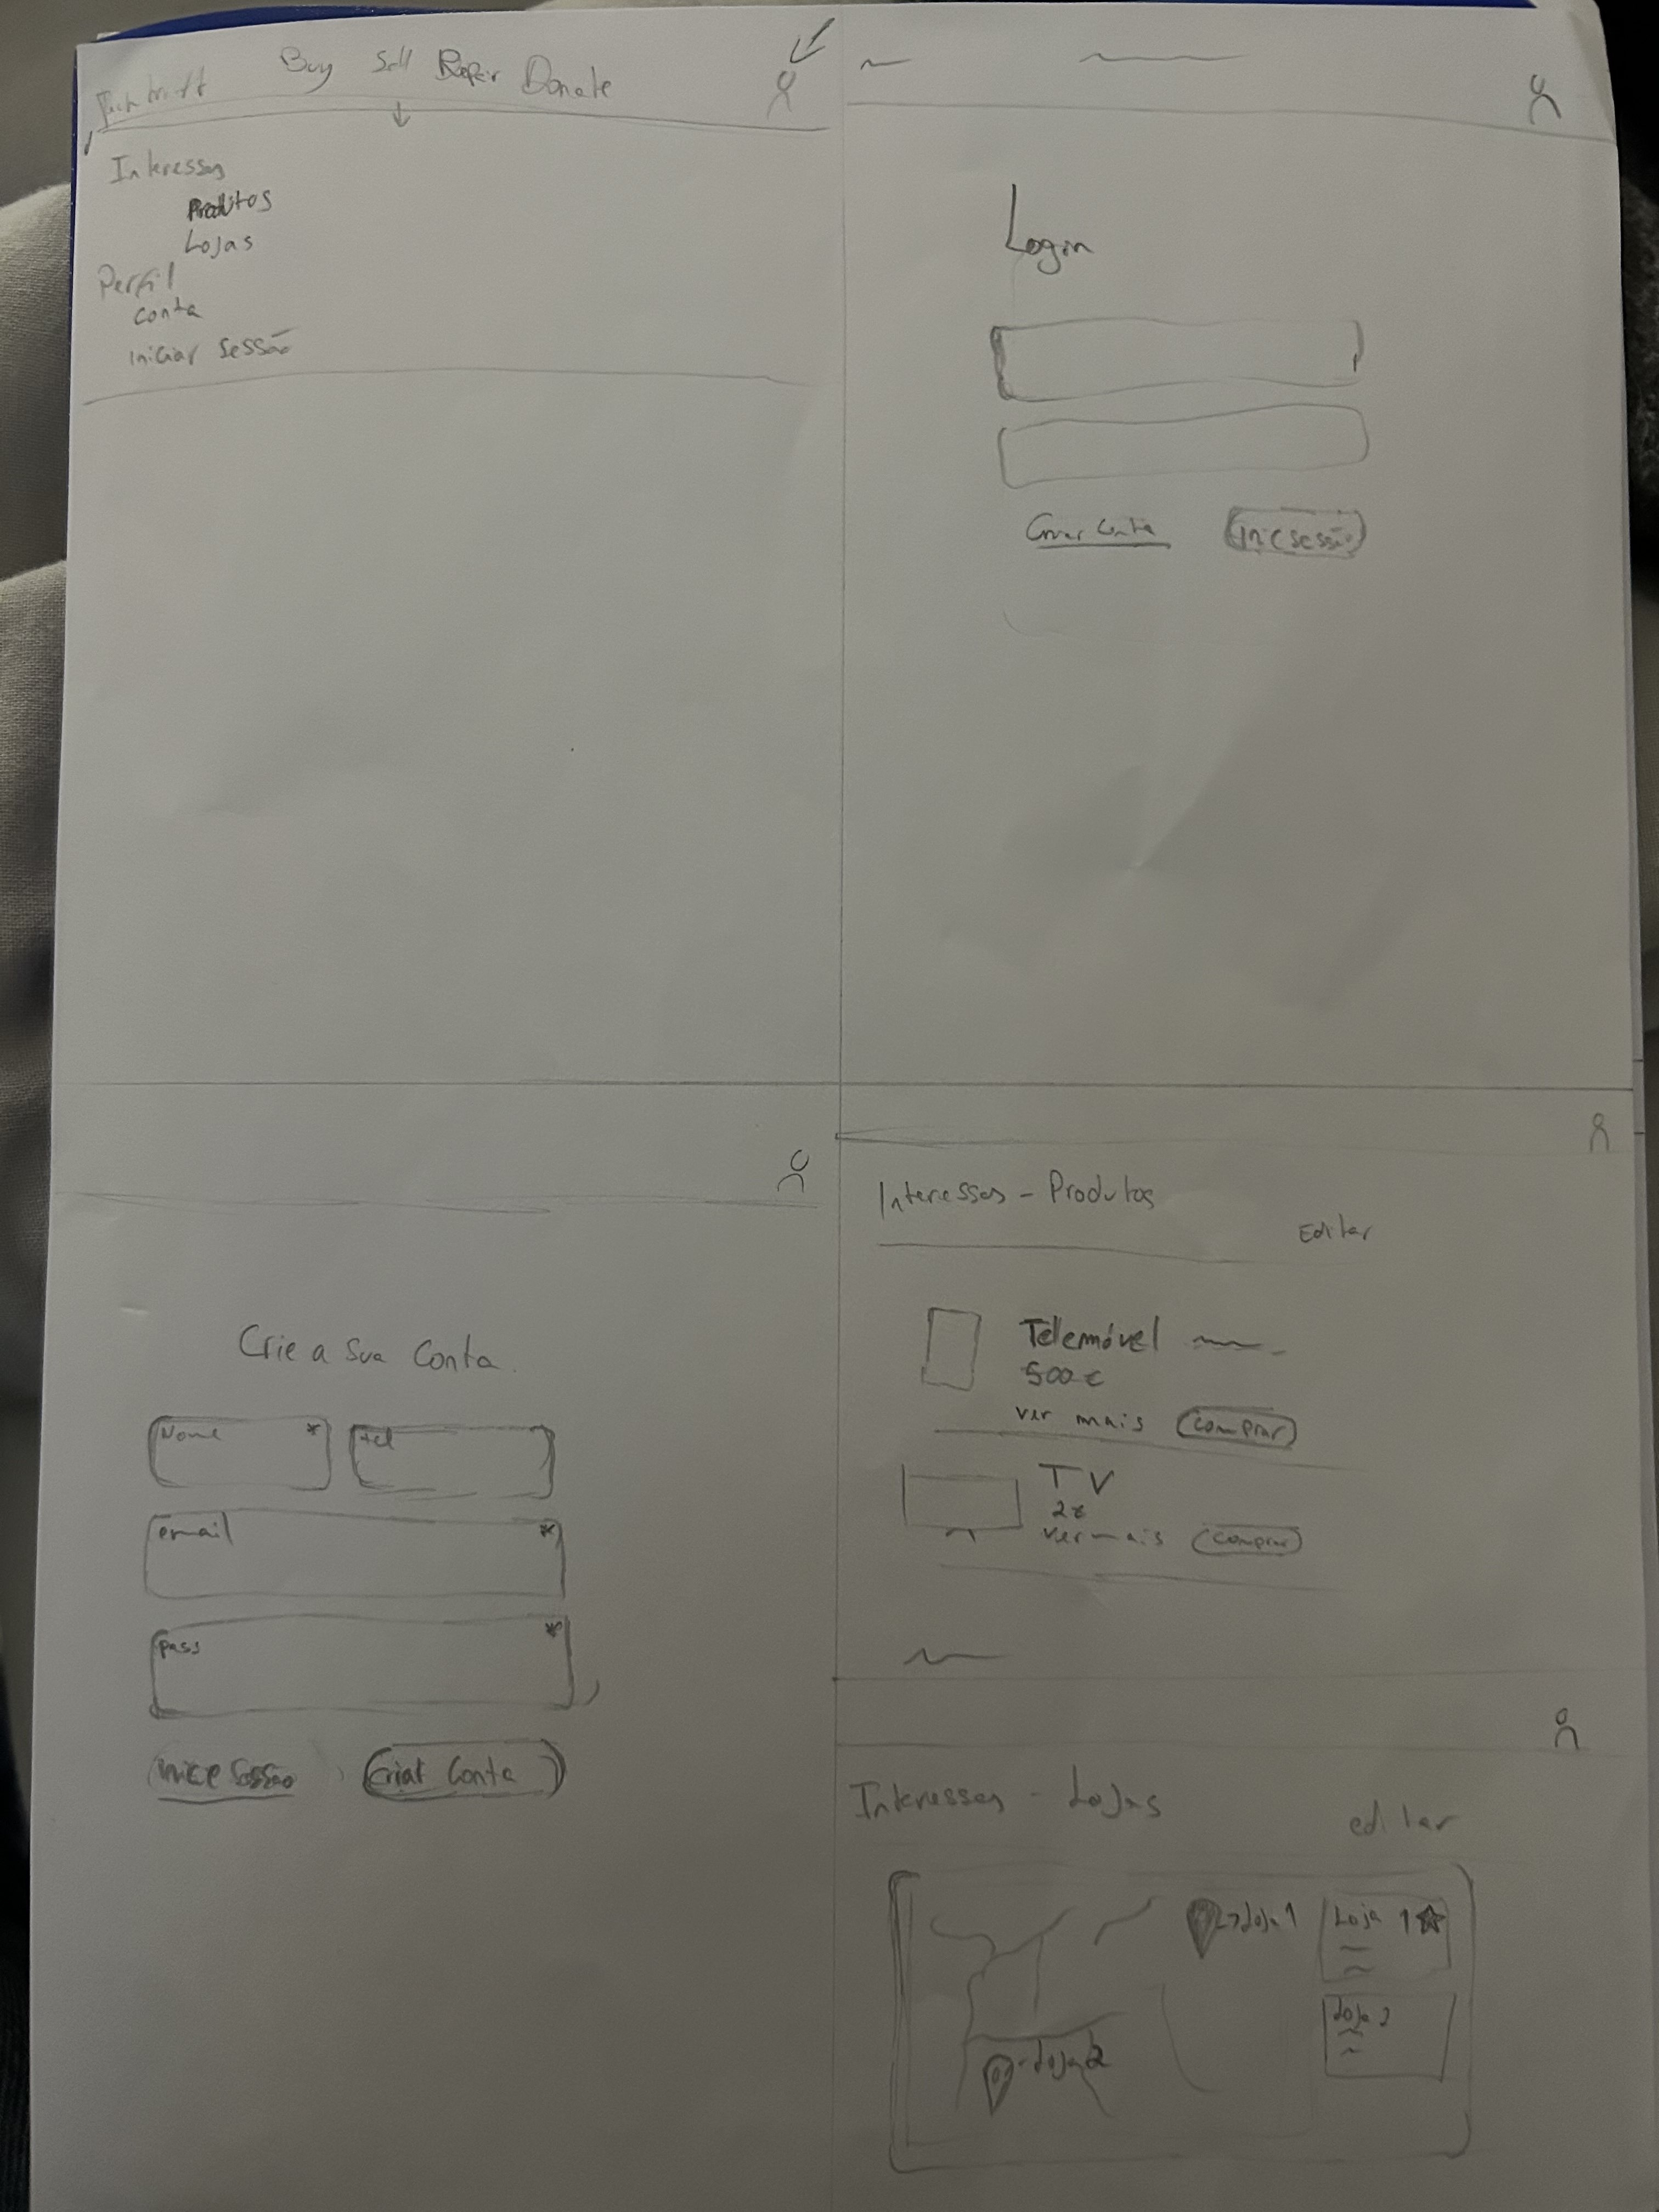 Buy Sell Repair Donate
Interesses
Produtos
Lojas
Perfil
Conta
iniciar sessão
Login
Criar Conta
inic sessão
Crie a sua Conta.
Nome *
tel
email *
pass *
inicie sessão
Criar Conta
Interesses - Produtos
Editar
Telemóvel
500€
ver mais comprar
TV
2€
ver mais comprar
Interesses - Lojas
editar
Loja 1
Loja 1
Loja 2
Loja 2